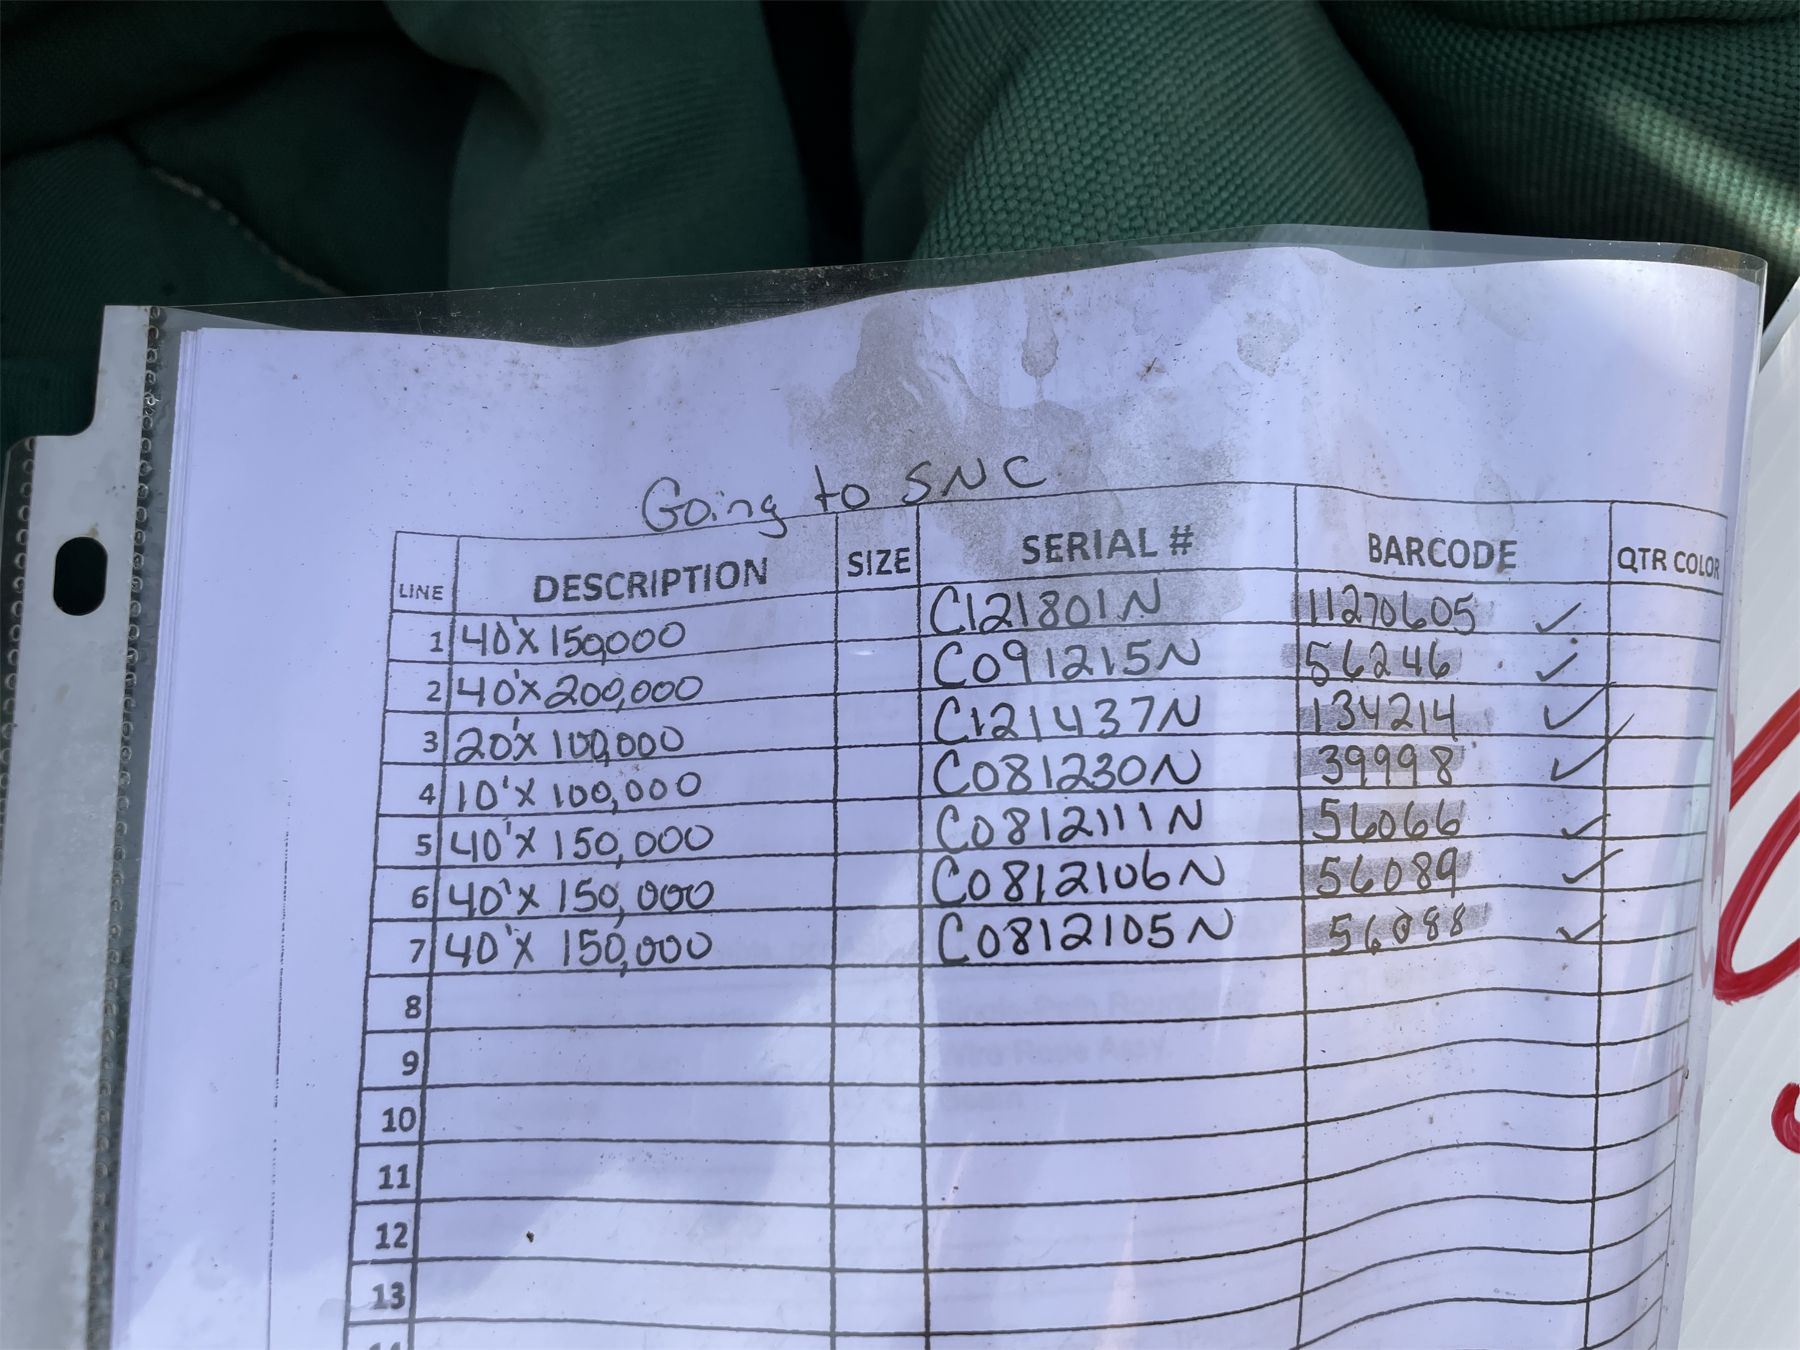 Going to SNC
LINE DESCRIPTION SIZE SERIAL # BARCODE QTR COLOR
1 40'X 150,000 C121801N 11270605 ✓
2 40'X 200,000 C091215N 56246 ✓
3 20'X 100,000 C121437N 134214 ✓
4 10'X 100,000 C081230N 39998 ✓
5 40'X 150,000 C0812111N 56066 ✓
6 40'X 150,000 C0812106N 56089 ✓
7 40'X 150,000 C0812105N 56088 ✓
8
9
10
11
12
13